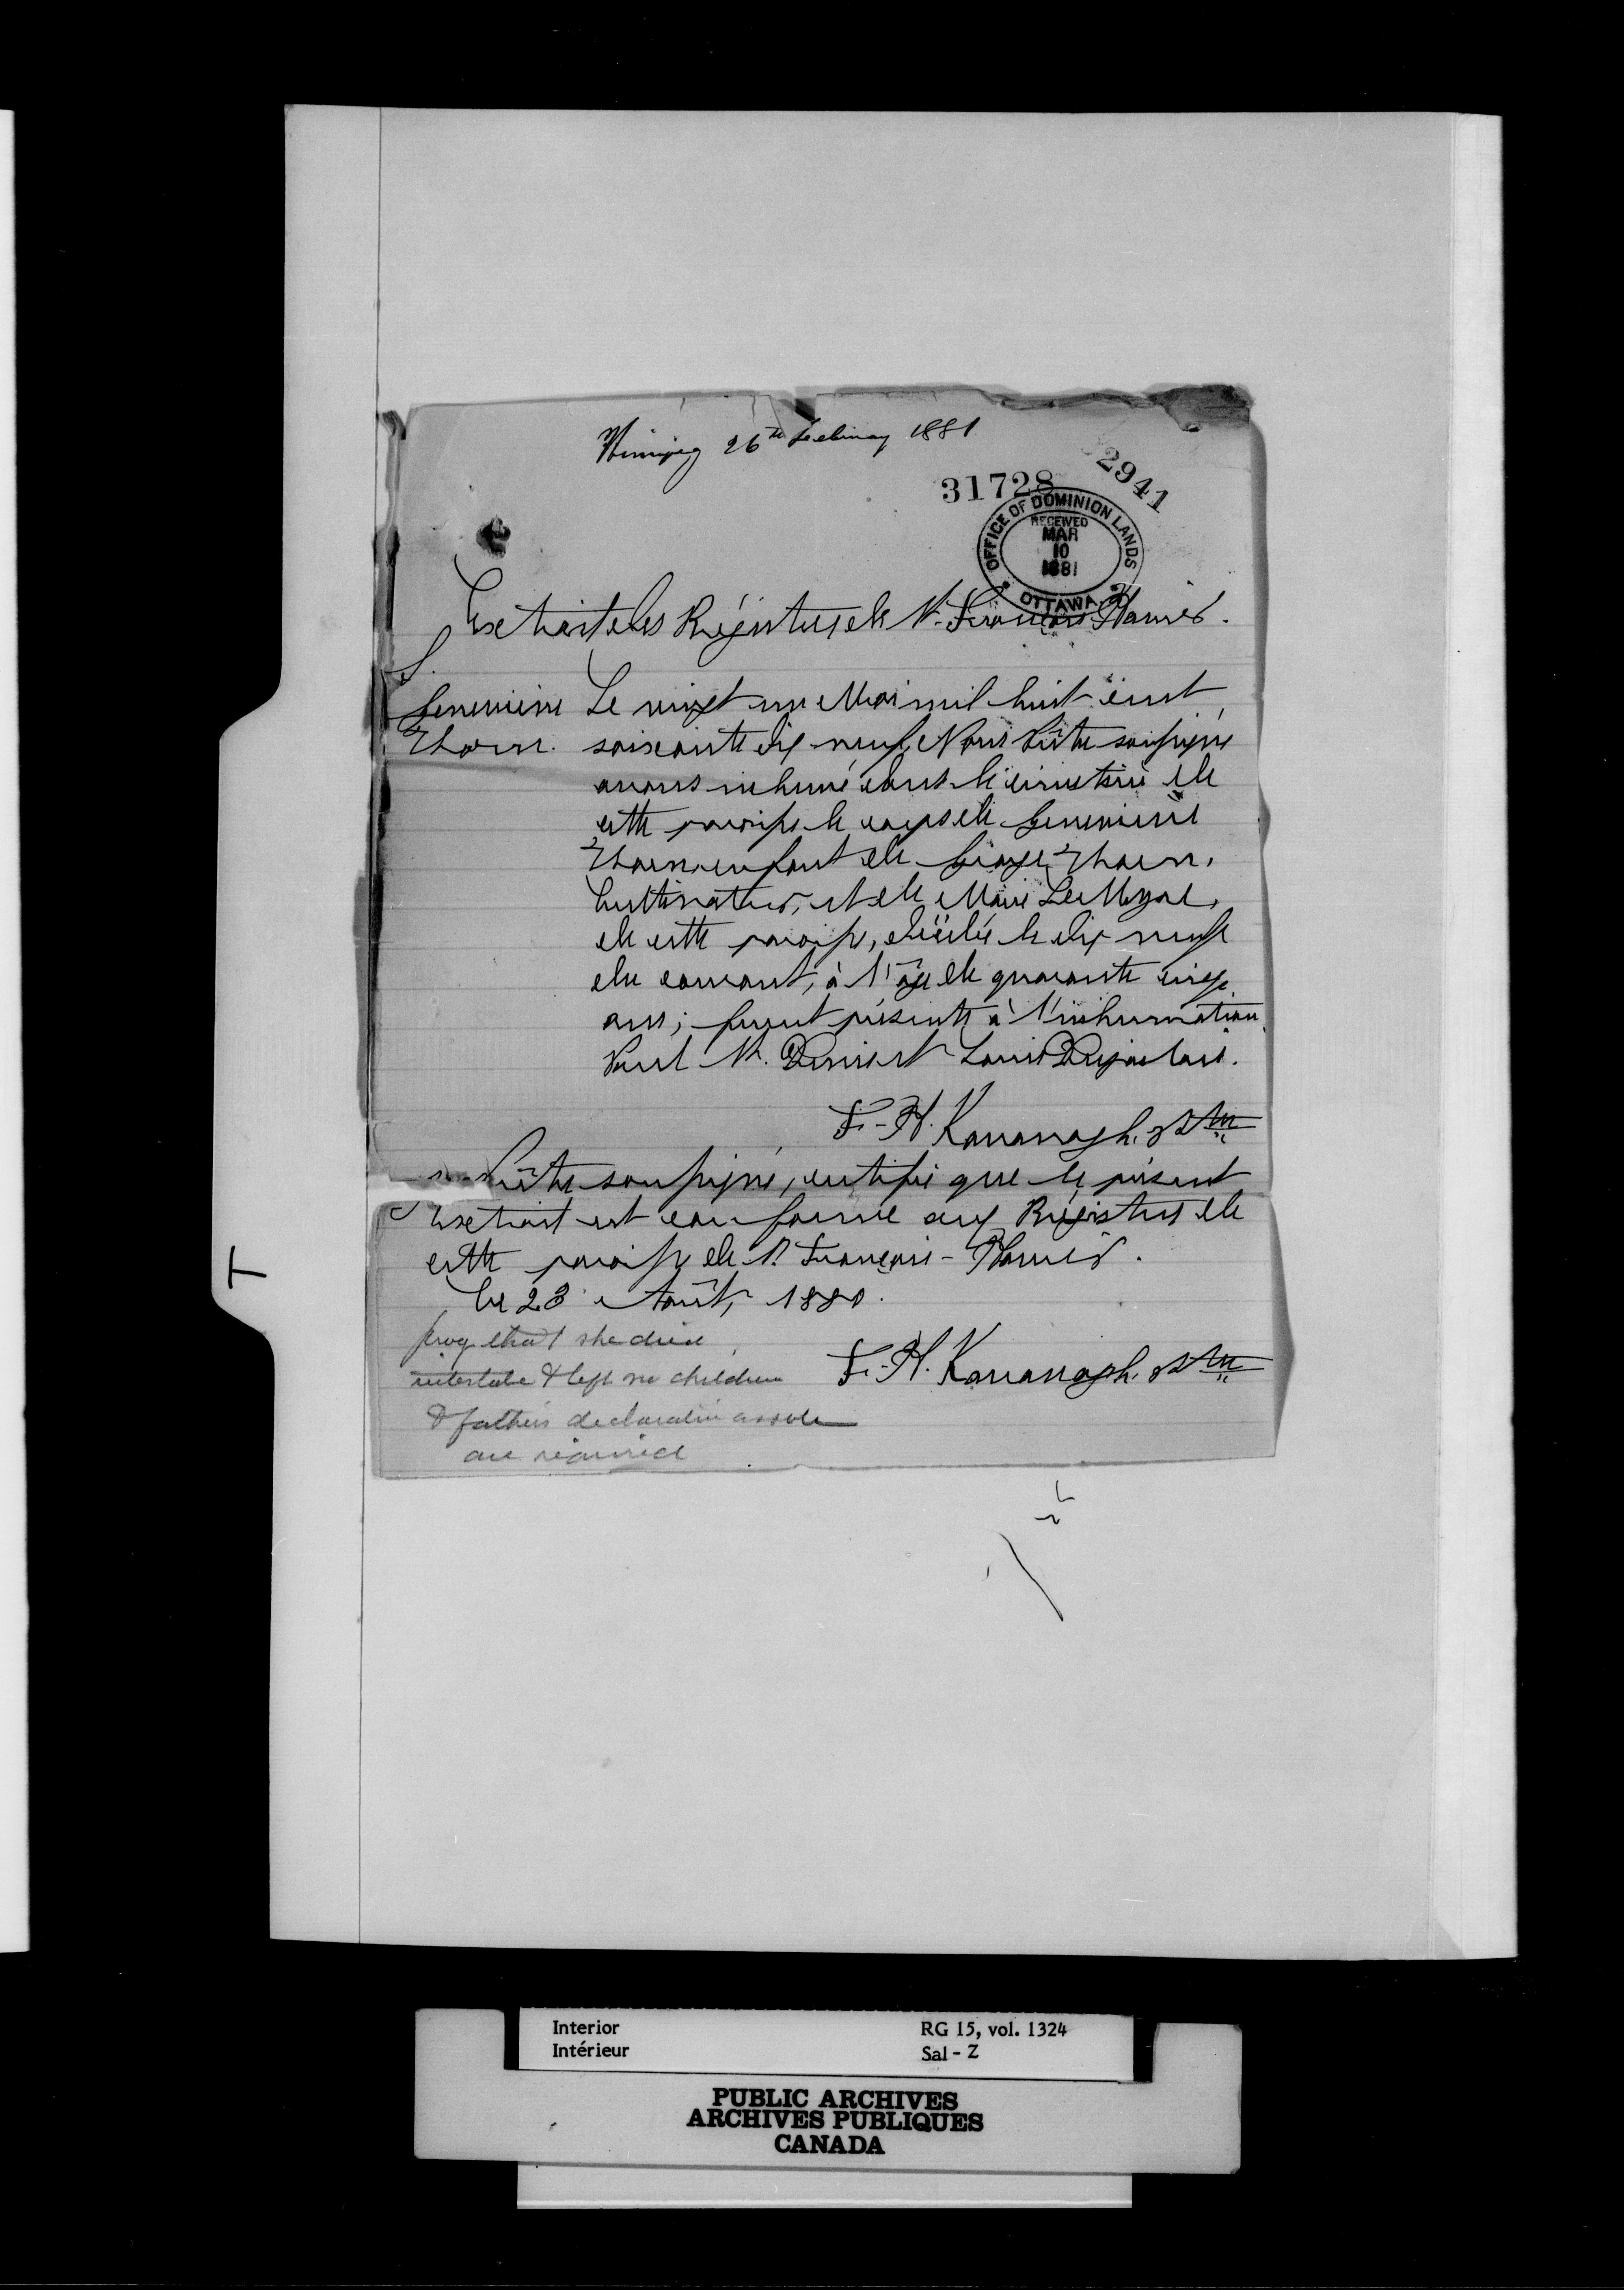 Winnipeg 26th February 1881
31728
2941
OFFICE OF DOMINION LANDS
RECEIVED
MAR
10
1881
OTTAWA
Extrait des Régistres de St. François-Xavier.
S.
Genevieve
Thorn.
Le vingt un Mai mil huit cent
soixante dix neuf, Nous Prêtre soussigné
avons inhumé dans le cimetière de
cette paroisse le corps de Genevieve
Thorn enfant de George Thorn,
Cultivateur, et de Marie
de cette paroisse, décédée le dix neuf
du courant, à l'âge de quarante cinq
ans; furent présents à l'inhumation
Paul St. Denis et Louis Dujarlais.
F.-X. Kavanagh. Ptre
Prêtre soussigné, certifie que le présent
Extrait est conforme aux Régistres de
cette paroisse de St. François-Xavier.
Ce 23 Août, 1880.
F.-X. Kavanagh. Ptre
proof that she died
intestate & left no children
& father's declaration as sole
are required
T
Interior
Intérieur
RG 15, vol. 1324
Sal - Z
PUBLIC ARCHIVES
ARCHIVES PUBLIQUES
CANADA